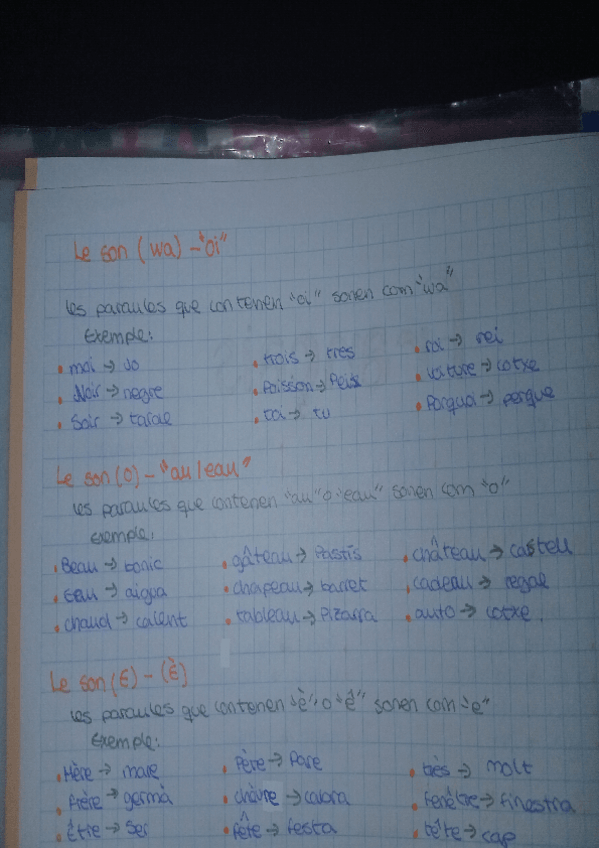 Le son (wa) - "oi"
Les paraules que contenen "oi" sonen com "wa"
Exemple:
• moi → Jo • trois → tres • roi → rei
• Noir → negre • Poisson → Peix • voiture → cotxe
• Soir → tarde • toi → tu • Porquoi → perque
Le son (O) - "au/eau"
Les paraules que contenen "au" o "eau" sonen com "o"
exemple:
• Beau → bonic • gâteau → Pastís • château → castell
• eau → aigua • chapeau → barret • cadeau → regal
• chaud → calent • tableau → Pizarra • auto → cotxe.
Le son (E) - (È)
Les paraules que contenen "è" o "ê" sonen com "e"
Exemple:
• Mère → mare • Père → Pare • très → molt
• frère → germà • chèvre → cabra • fenêtre → finestra
• Être → Ser • fête → festa • tête → cap